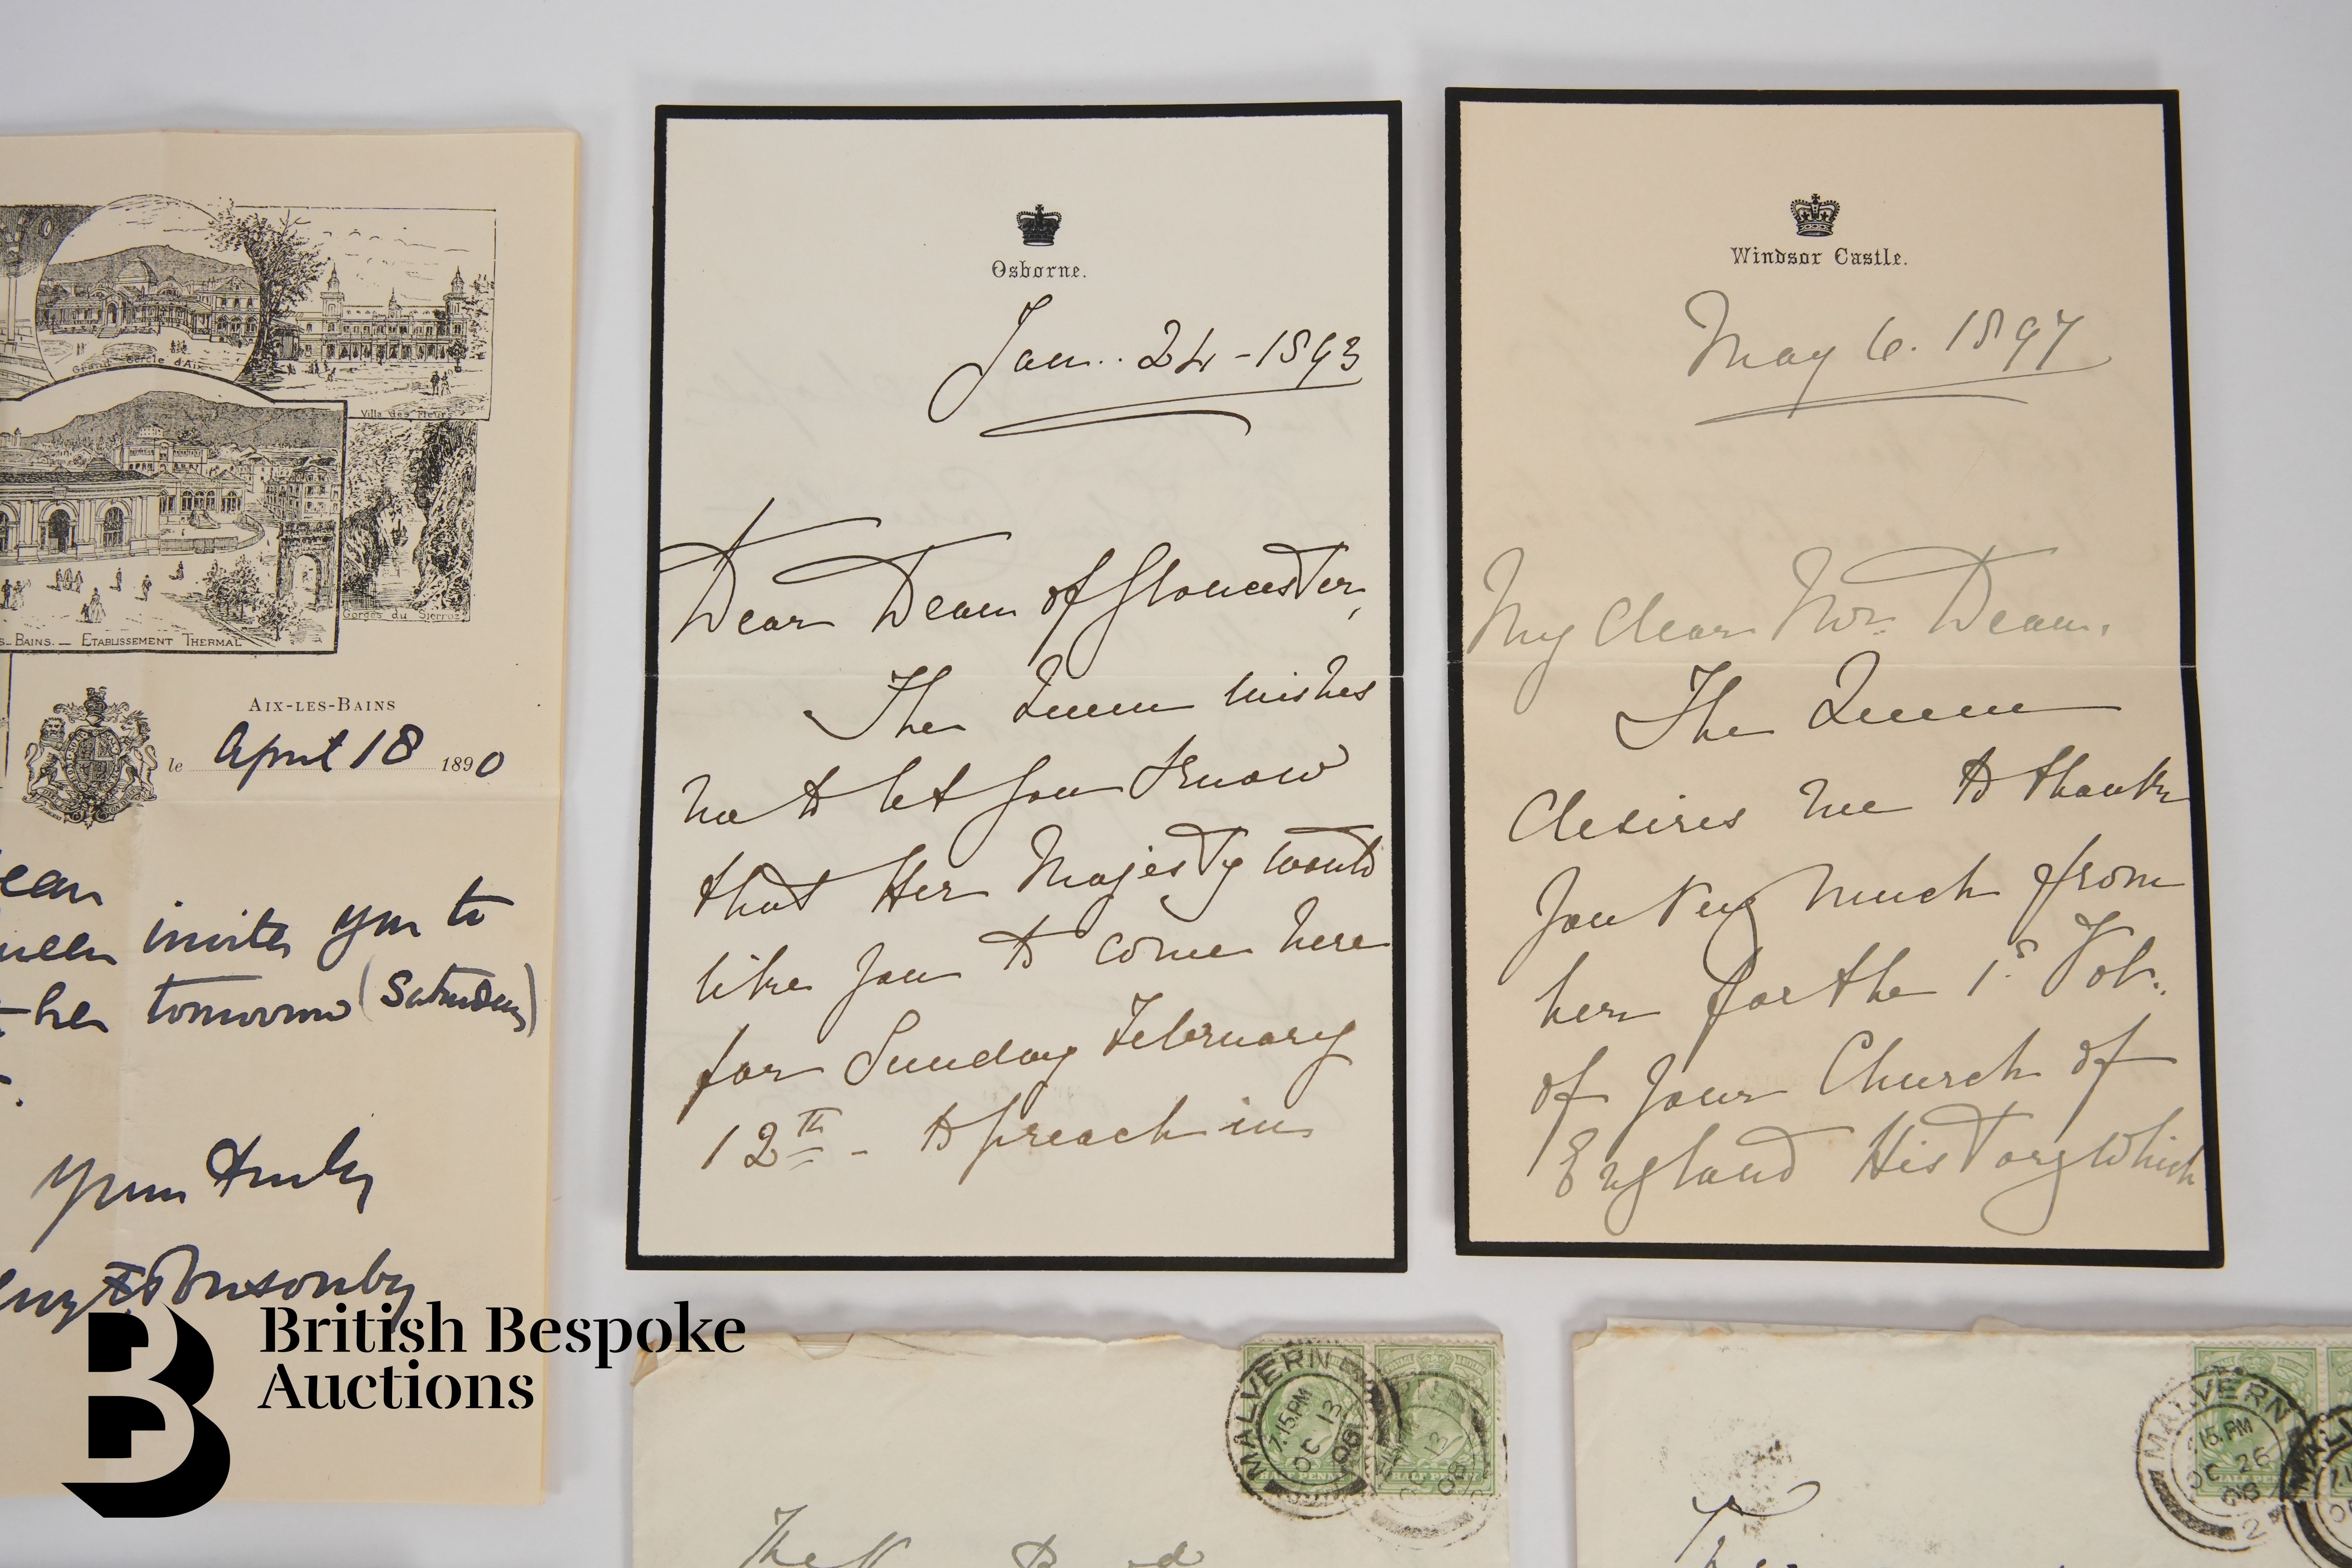 Grand Cercle d'Aix
Villa des Fleurs
Gorges du Sierroz
S-BAINS. — ETABLISSEMENT THERMAL
AIX-LES-BAINS
le April 18 1890
ean
ueen invites you to
her tomorrow (Saturday)
Yours truly
Ponsonby
Osborne.
Jan.. 24 - 1893
Dear Dean of Gloucester,
The Queen wishes
me to let you know
that Her Majesty would
like you to come here
for Sunday February
12TH - to preach in
Windsor Castle.
May 6. 1897
My dear Mr. Dean.
The Queen
desires me to thank
you very much from
her for the 1st Vol.
of your Church of
England History which
British Bespoke
Auctions
MALVERN
7.15.PM
OC 13
06
HALF PENNY
HALF PENNY
The
MALVERN
.15.PM
OC 26
08
2
HALF PEN